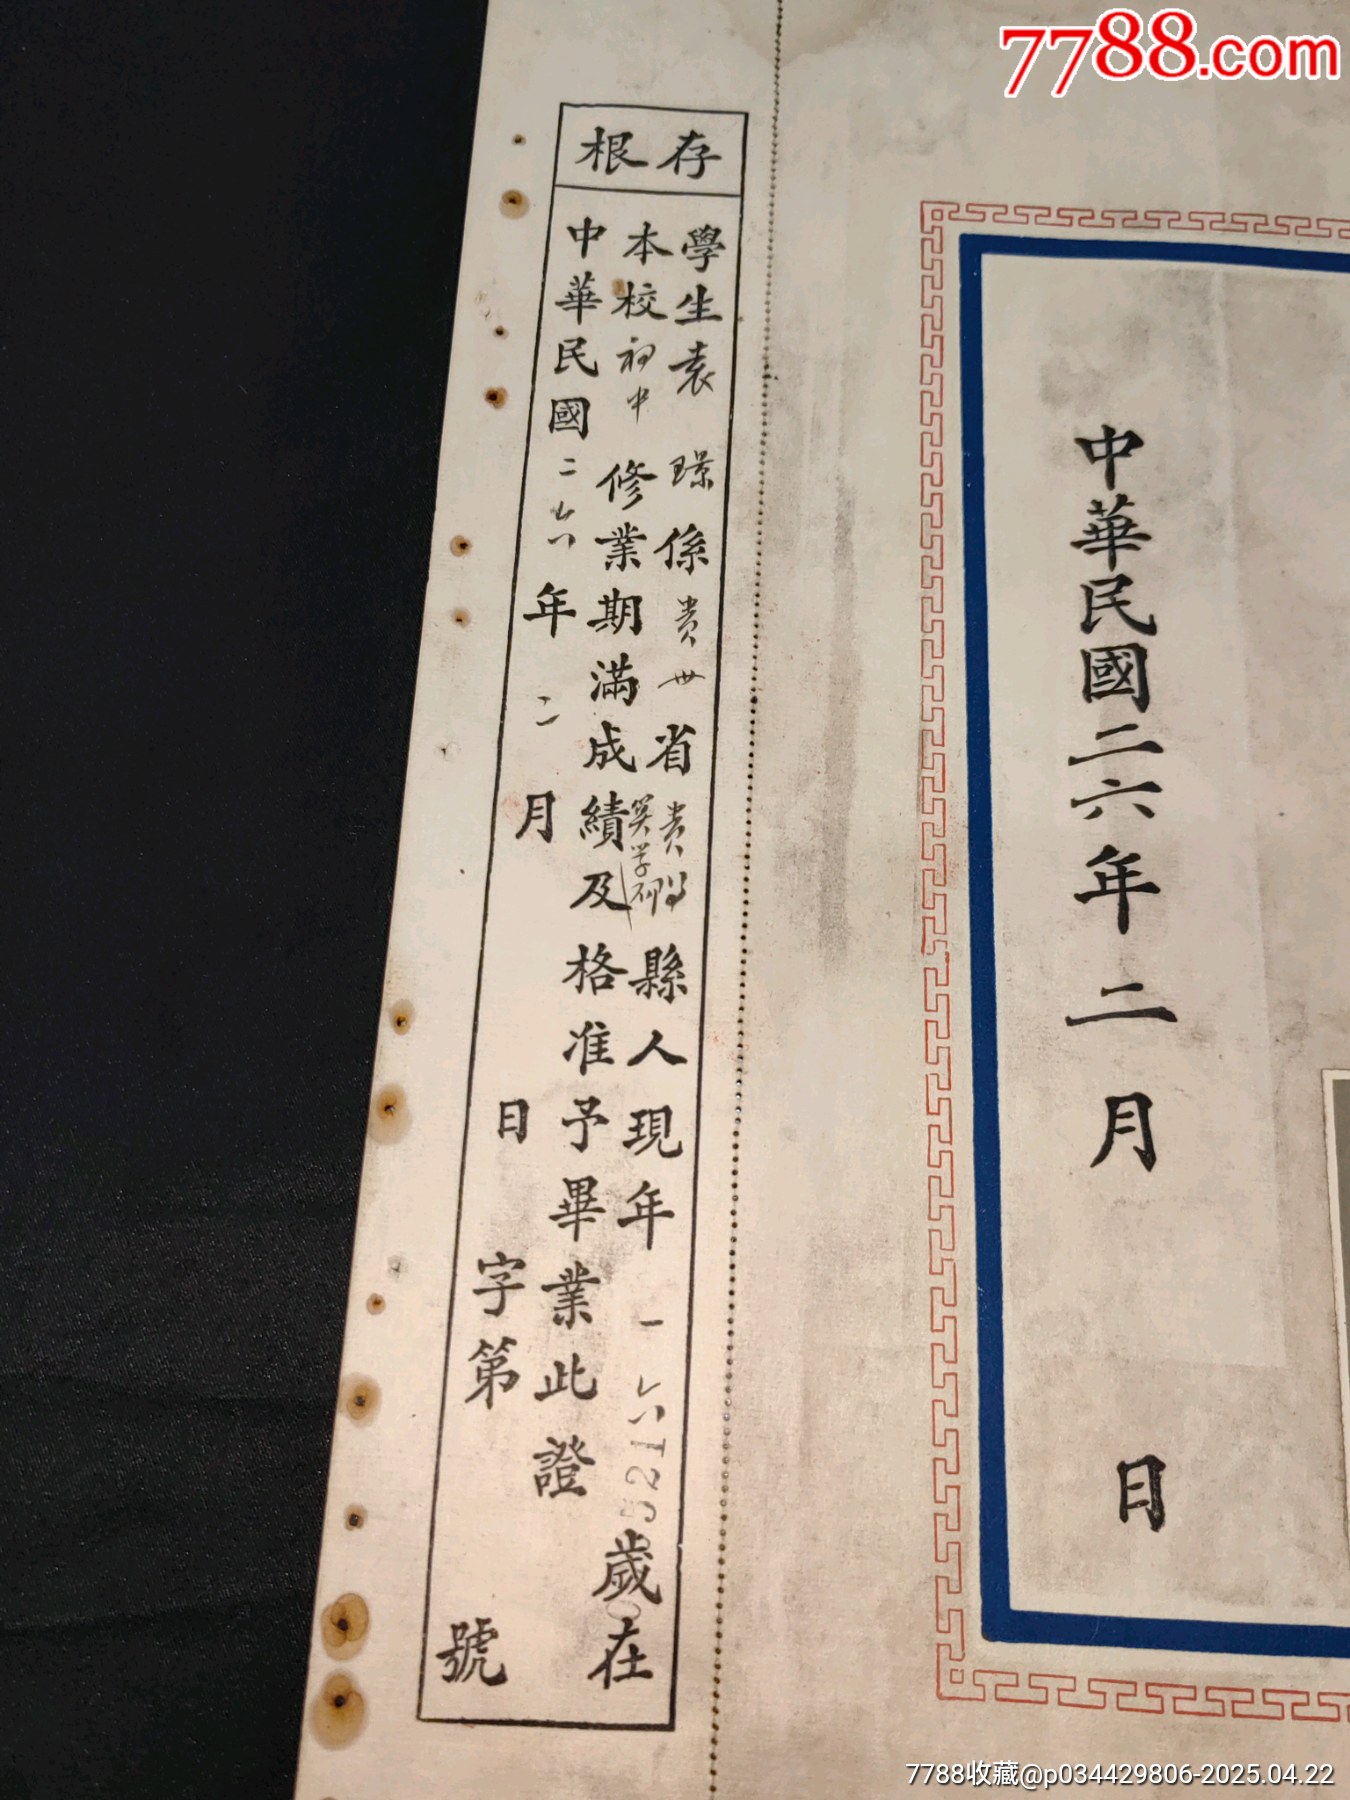 7788.com
存根
學生袁璟係貴州省貴陽縣人現年一六歲在
本校初中修業期滿成績及格准予畢業此證
中華民國二六年二月 日
字第 號
中華民國二六年二月 日
7788收藏@p034429806-2025.04.22